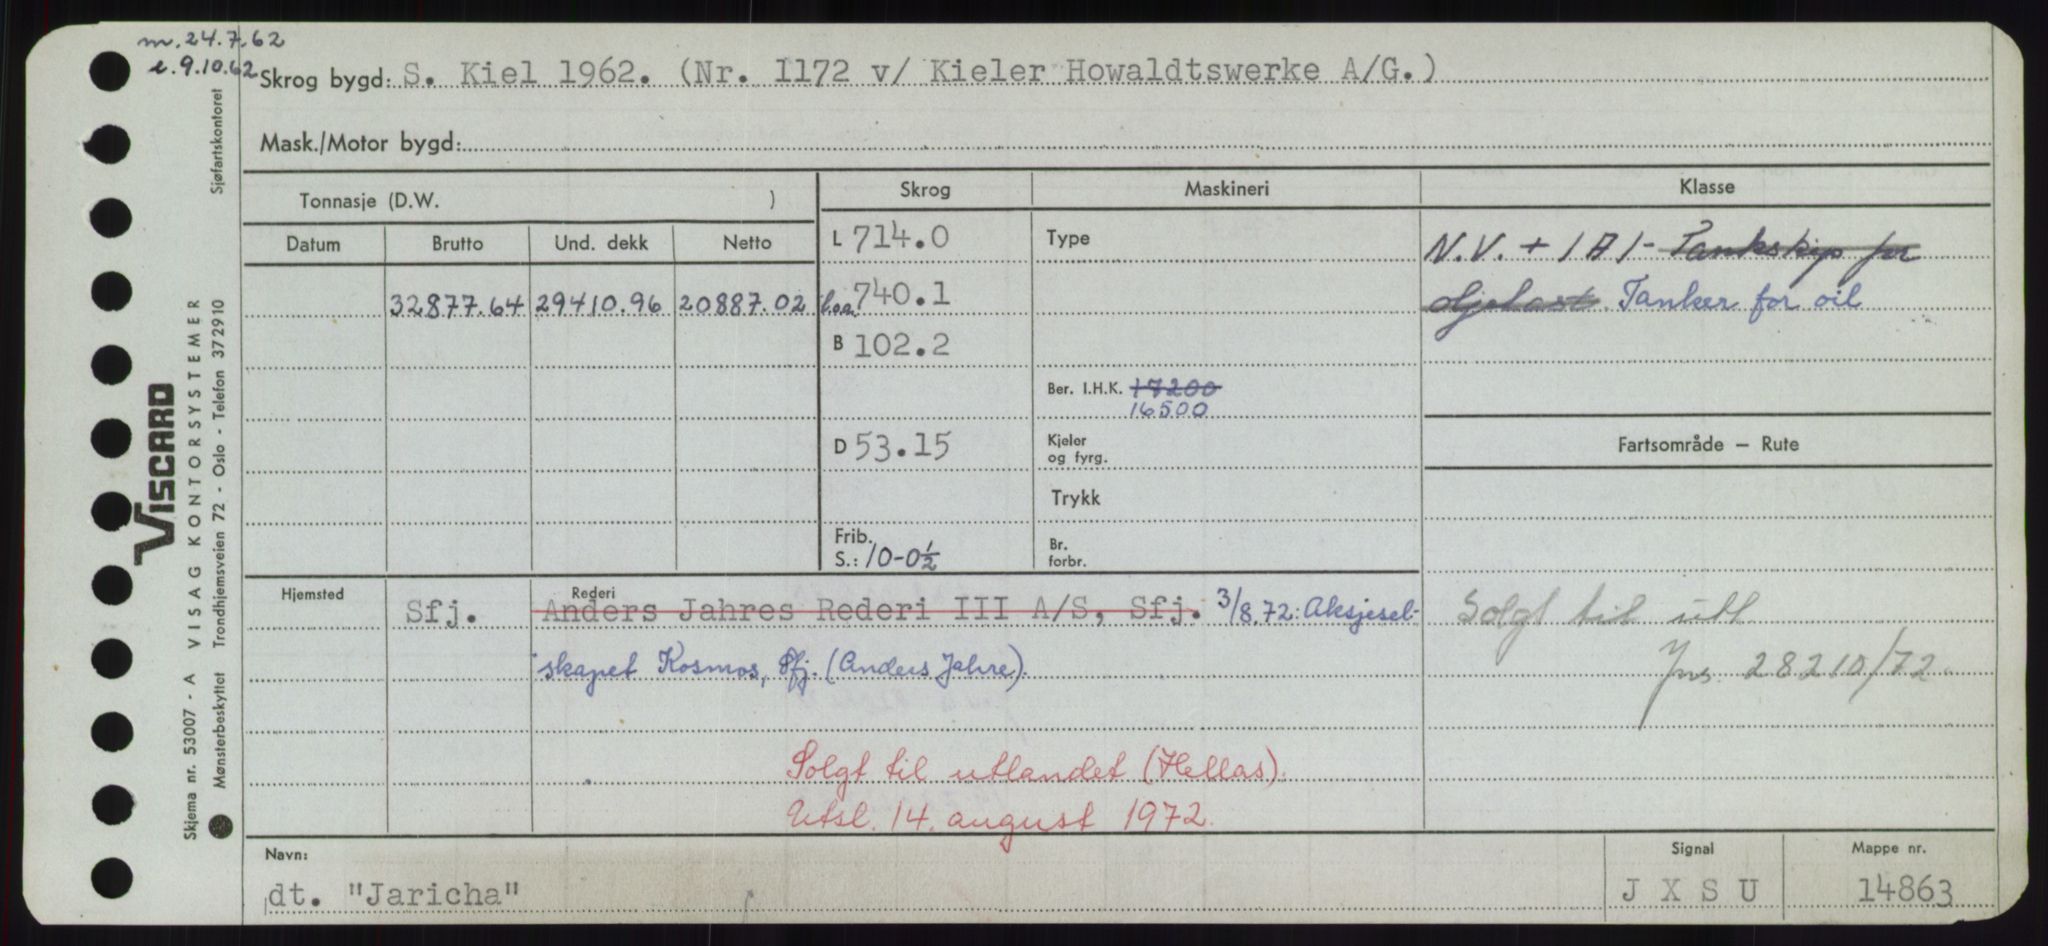 m. 24.7.62
e. 9.10.62
Skrog bygd: S. Kiel 1962. (Nr. 1172 v/ Kieler Howaldtswerke A/G.)
Mask./Motor bygd:
Tonnasje (D.W. )
Skrog
Maskineri
Klasse
Datum
Brutto
Und. dekk
Netto
L 714.0
Type
N.V. + 1A1- Tankskip for
32877.64
29410.96
20887.02
loa 740.1
oljelast. Tanker for oil
B 102.2
Ber. I.H.K. 17200
16500
D 53.15
Kjeler
og fyrg.
Fartsområde – Rute
Trykk
Frib.
S.: 10-0½
Br.
forbr.
Hjemsted
Sfj.
Rederi
Anders Jahres Rederi III A/S, Sfj. 3/8.72: Aksjesel-
skapet Kosmos, Sfj. (Anders Jahre).
Solgt til utl
Jns. 28210/72
Solgt til utlandet (Hellas).
Utsl. 14. august 1972.
Navn:
dt. "Jaricha"
Signal
JXSU
Mappe nr.
14863
VISCARD
Skjema nr. 53007 - A VISAG KONTORSYSTEMER
Mønsterbeskyttet Trondhjemsveien 72 - Oslo - Telefon 372910 Sjøfartskontoret